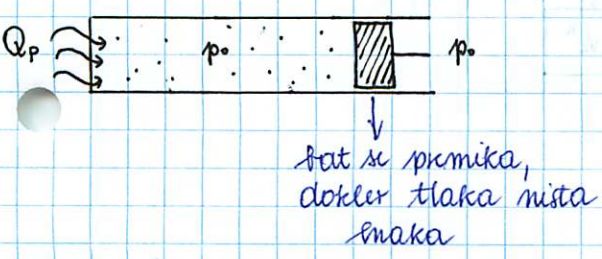 Qp p₀ p₀
bat se premika,
dokler tlaka nista
enaka